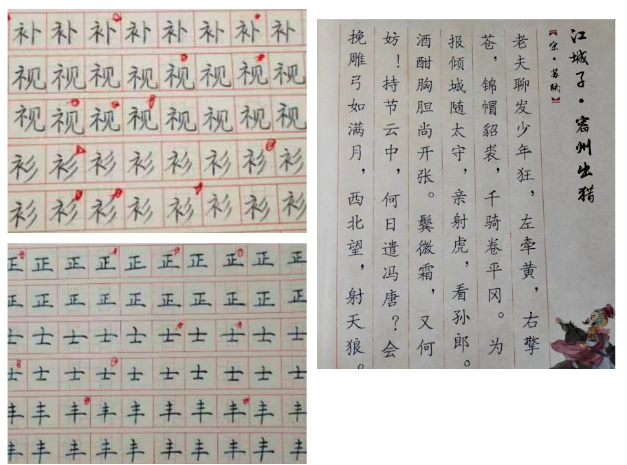 补补补补补补补补
视视视视视视视视
视视视视视视视视
衫衫衫衫衫衫衫衫
衫衫衫衫衫衫衫衫
正正正正正正正正正正
正正正正正正正正正正
士士士士士士士士士士
士士士士士士士士士士
丰丰丰丰丰丰丰丰丰丰
丰丰丰丰丰丰丰丰丰丰
江城子·密州出猎
【宋·苏轼】
老夫聊发少年狂，左牵黄，右擎
苍，锦帽貂裘，千骑卷平冈。为
报倾城随太守，亲射虎，看孙郎。
酒酣胸胆尚开张。鬓微霜，又何
妨！持节云中，何日遣冯唐？会
挽雕弓如满月，西北望，射天狼。